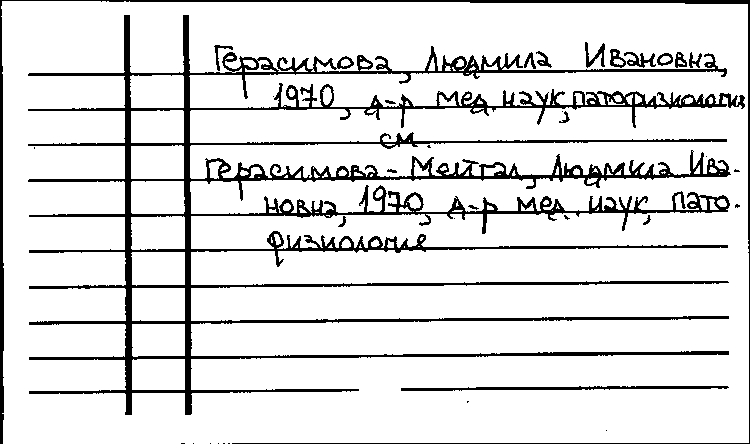 Герасимова, Людмила Ивановна,
1970, д-р мед. наук, патофизиология
см.
Герасимова-Мейгал, Людмила Ива-
новна, 1970, д-р мед. наук, пато-
физиология